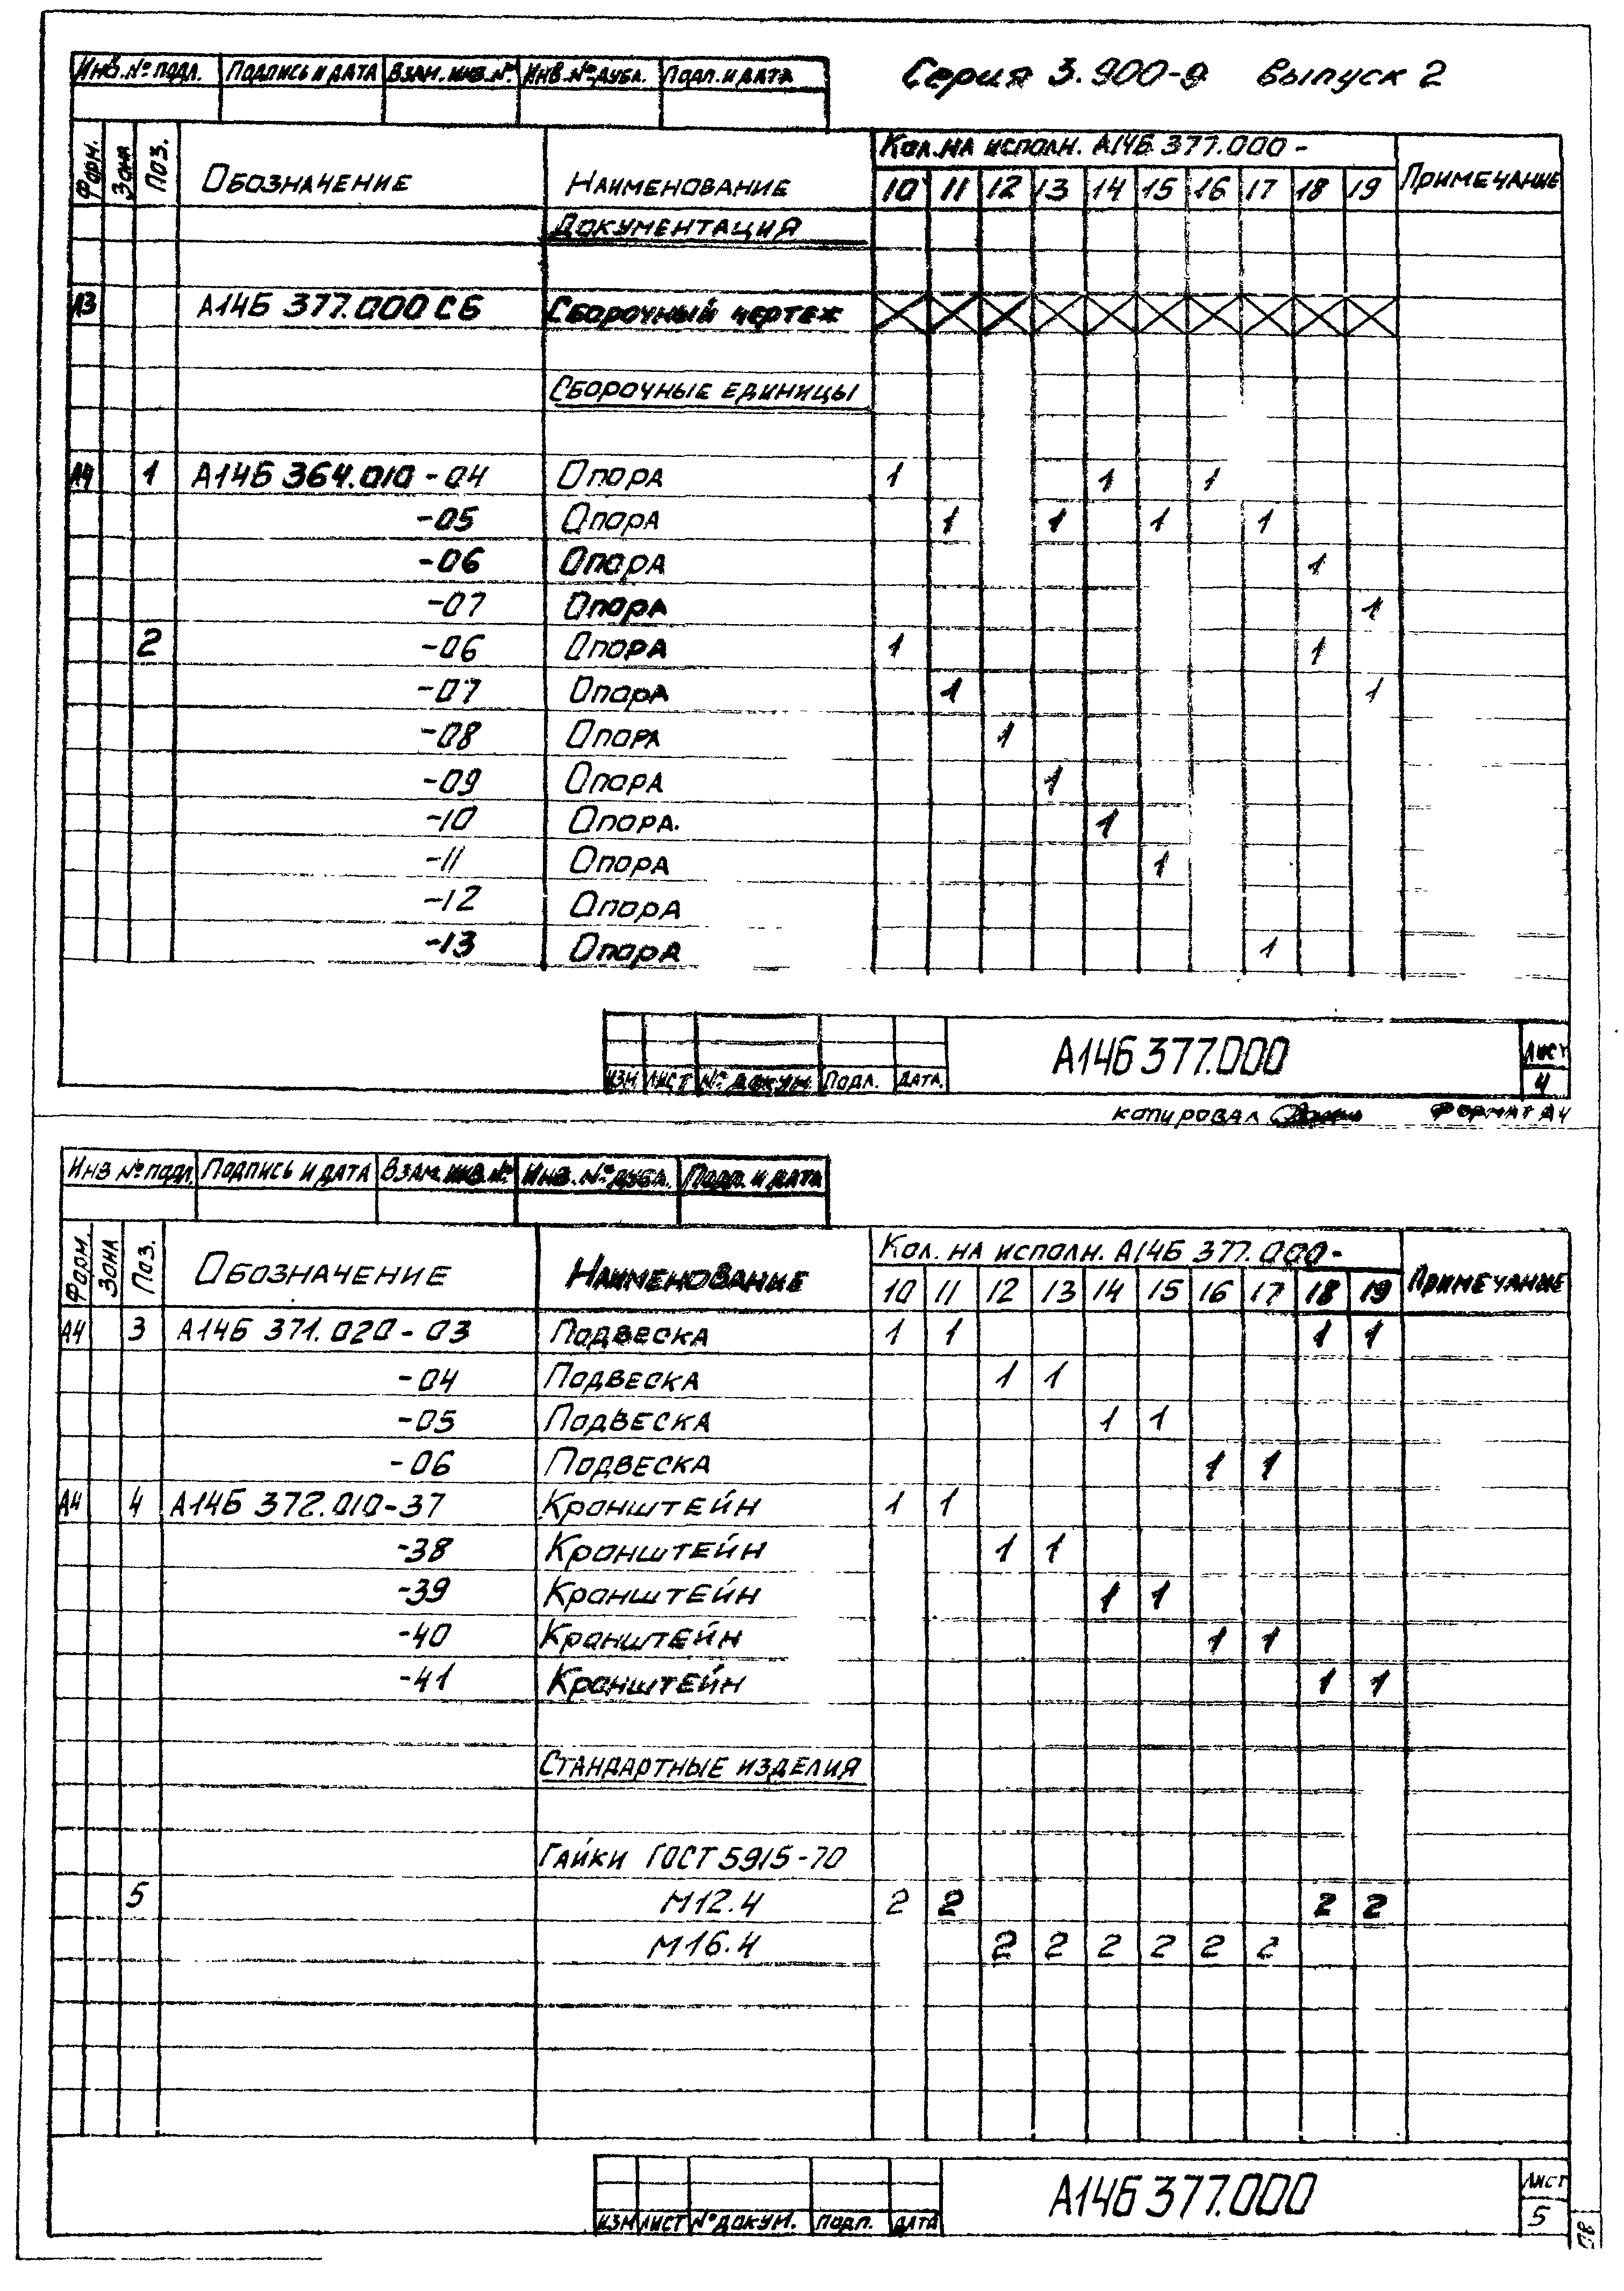 Серия 3.900-9 выпуск 2
Инв.№ подл. Подпись и дата Взам.инв.№ Инв.№дубл. Подп. и дата
Форм. Зона Поз. Обозначение Наименование Кол.на исполн. А14Б 377.000- Примечание
10 11 12 13 14 15 16 17 18 19
Документация
А3 А14Б 377.000 СБ Сборочный чертеж
Сборочные единицы
А4 1 А14Б 364.010-04 Опора 1 1 1
-05 Опора 1 1 1 1
-06 Опора 1
-07 Опора 1
2 -06 Опора 1 1
-07 Опора 1 1
-08 Опора 1
-09 Опора 1
-10 Опора. 1
-11 Опора 1
-12 Опора
-13 Опора 1
А14Б 377.000
Лист
4
Изм Лист № докум. Подп. Дата
копировал Формат А4
Инв № подл. Подпись и дата Взам.инв.№ Инв.№дубл. Подп. и дата
Форм. Зона Поз. Обозначение Наименование Кол. на исполн. А14Б 377.000- Примечание
10 11 12 13 14 15 16 17 18 19
А4 3 А14Б 371.020-03 Подвеска 1 1 1 1
-04 Подвеска 1 1
-05 Подвеска 1 1
-06 Подвеска 1 1
А4 4 А14Б 372.010-37 Кронштейн 1 1
-38 Кронштейн 1 1
-39 Кронштейн 1 1
-40 Кронштейн 1 1
-41 Кронштейн 1 1
Стандартные изделия
Гайки ГОСТ 5915-70
5 М12.4 2 2 2 2
М16.4 2 2 2 2 2 2
А14Б 377.000
Лист
5
Изм Лист № докум. Подп. Дата